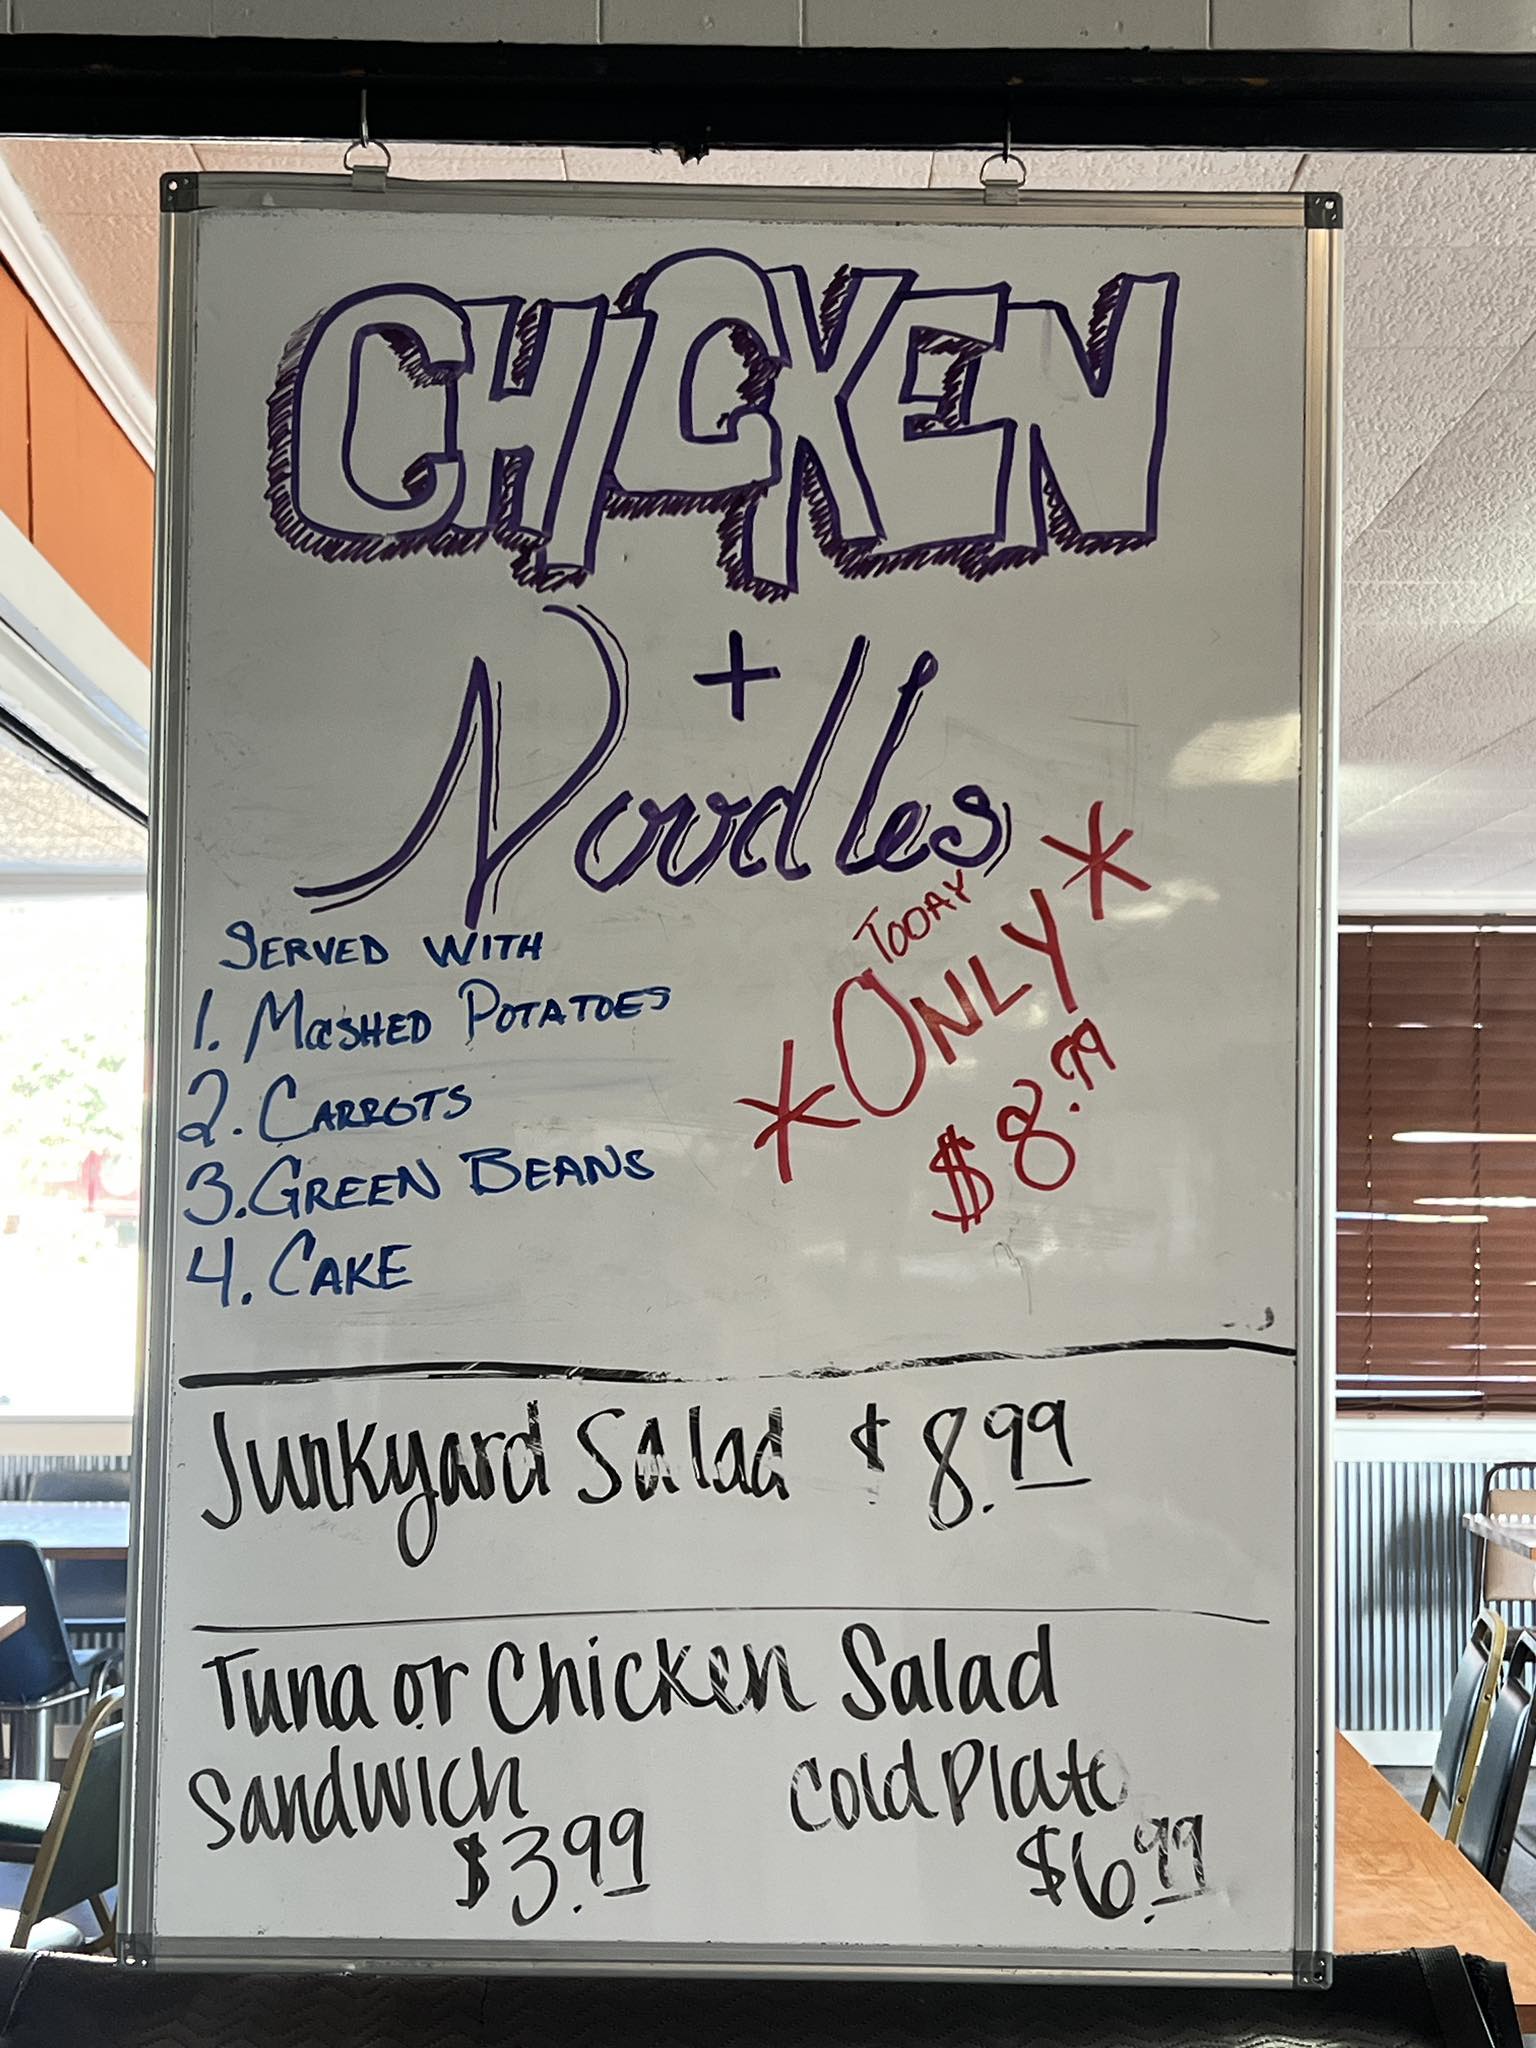 CHICKEN
+
Noodles
SERVED WITH
1. MaSHED POTATOES
2. CARROTS
3. GREEN BEANS
4. CAKE
TODAY
*ONLY*
$8.99
Junkyard Salad $8.99
Tuna or Chicken Salad
Sandwich
$3.99
Cold Plate
$6.99